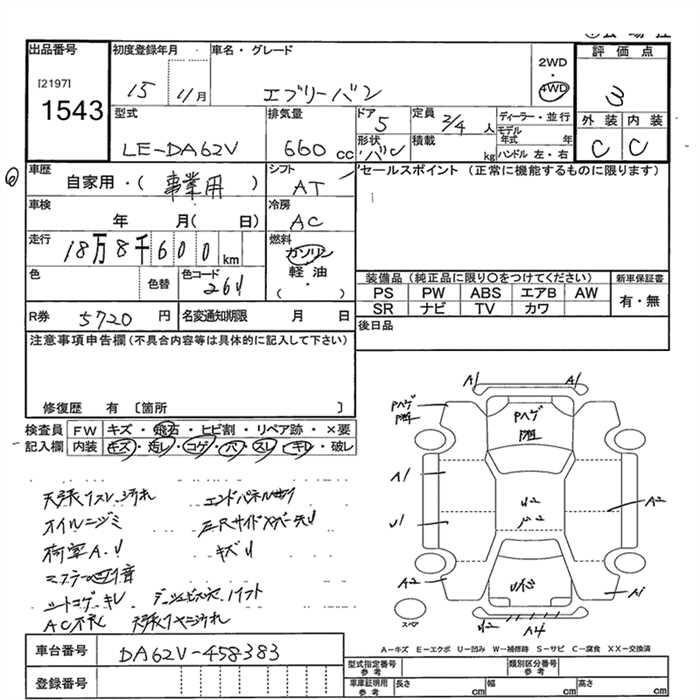 出品番号
[2197]
1543
初度登録年月
15 11月
車名・グレード
エブリーバン
2WD
・
4WD
評価点
3
外装 内装
C C
型式
LE-DA62V
排気量
660 cc
ドア
5
定員
2/4 人
ディーラー・並行
モデル年式 年
ハンドル 左・右
形状
バン
積載
kg
車歴
自家用・( 事業用 )
シフト
AT
セールスポイント (正常に機能するものに限ります)
車検
年 月( 日)
冷房
AC
走行
18万8千600 km
燃料
ガソリン
軽油
・
( )
色
色替
色コード
26U
装備品 (純正品に限り○をつけてください)
新車保証書
PS PW ABS エアB AW
SR ナビ TV カワ
有・無
R券 5720 円
名変通知期限 月 日
後日品
注意事項申告欄(不具合内容等は具体的に記入して下さい)
修復歴 有 〔箇所 〕
検査員記入欄
FW キズ・飛石・ヒビ割・リペア跡・×要
内装 キズ・汚レ・コゲ・穴・スレ・キレ・破レ
天張リスレ、汚れ
エンドパネル
オイルニジミ
荷室A.U
キズU
シートコゲ キレ
AC不良
A1 A1
Pハゲ
Pハゲ
A1
U1
A2
U2
A2
A1
A4
スペア
A-キズ E-エクボ U-凹み W-補修跡 S-サビ C-腐食 XX-交換済
車台番号
DA62V-458383
登録番号
型式指定番号 参考
類別区分番号 参考
車庫証明用 参考
長さ cm
幅 cm
高さ cm